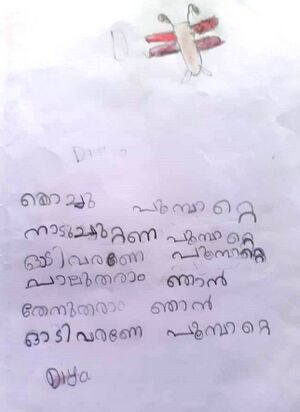 കൊച്ചു പൂമ്പാറ്റെ
നാടുചുറ്റണ പൂമ്പാറ്റെ
ഓടിവരണേ പൂമ്പാറ്റെ
പാലുതരാം ഞാൻ
തേനുതരാം ഞാൻ
ഓടിവരണേ പൂമ്പാറ്റെ
Diya